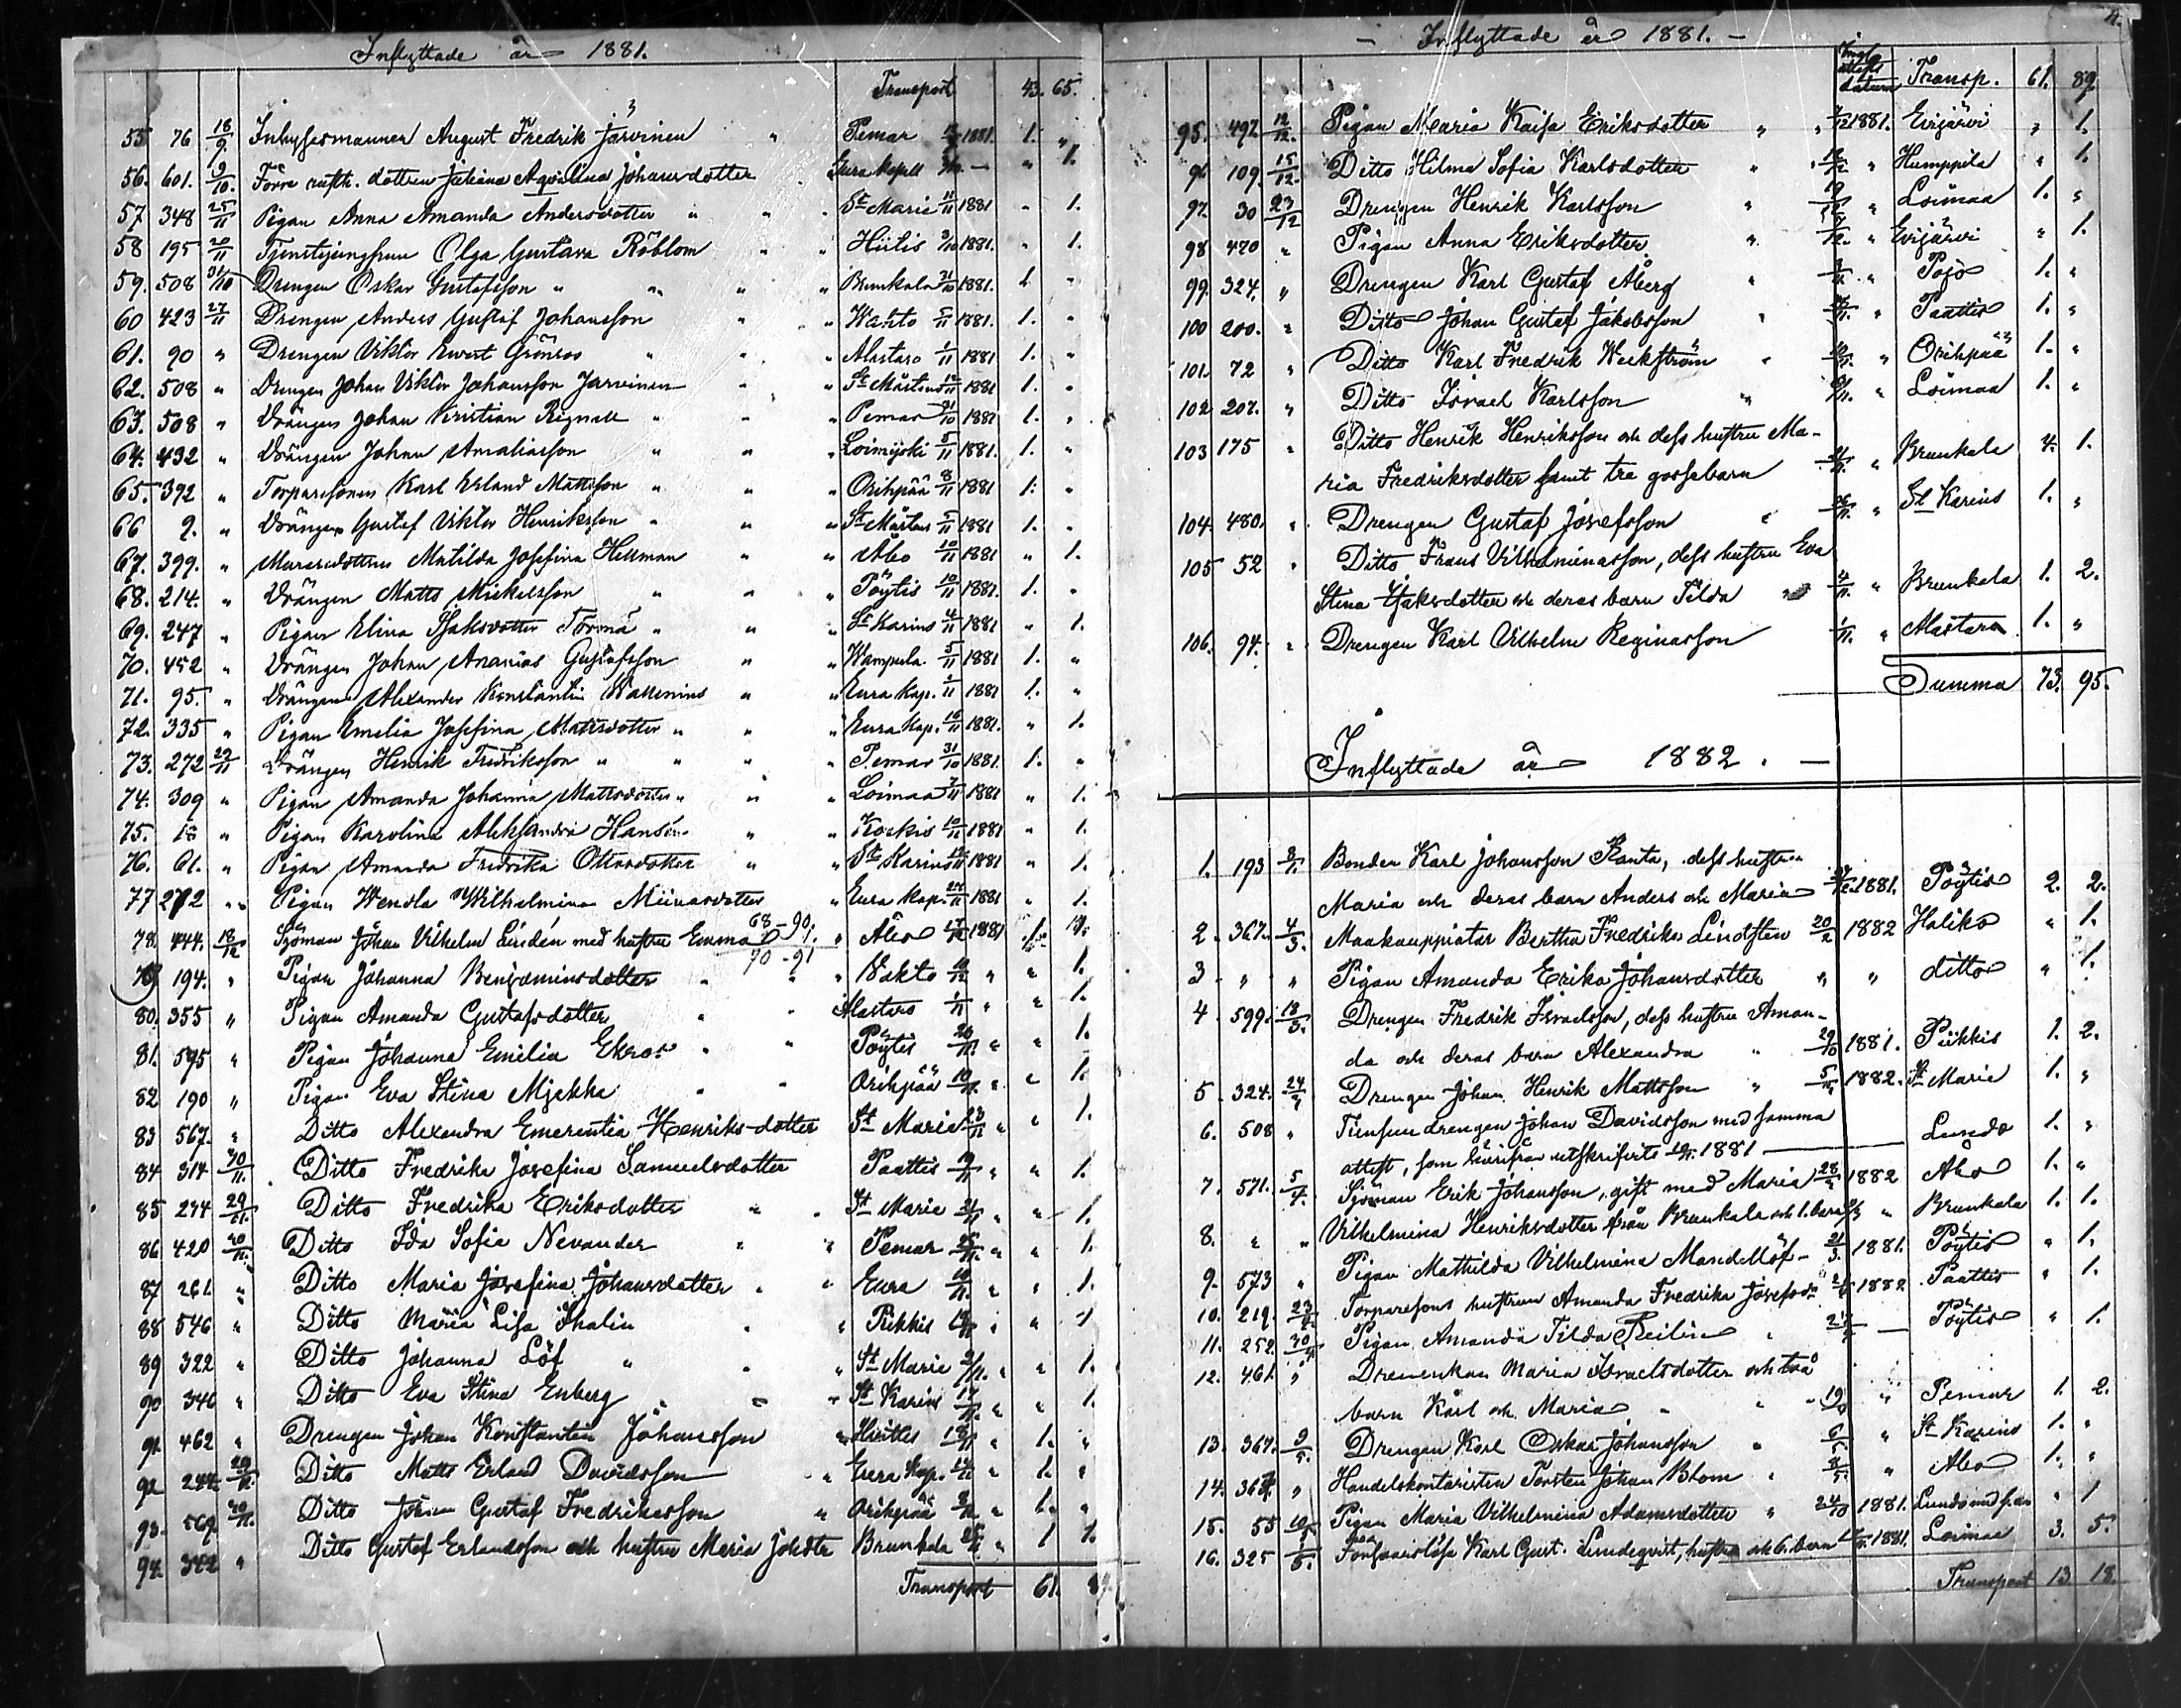 Inflyttade år 1881.
Transport 43. 65.
55 76 18/9 Inhysesmannen August Fredrik Järvinen " Pemar 1881. 1. "
56. 601. 9/10. Förre rusth. dottren Juliana Aqvilina Johansdotter Eura Kapell — " 1.
57 348 25/11 Pigan Anna Amanda Andersdotter " " St Marie 11/11 1881 " 1.
58 195 20/11 Tjenstejungfrun Olga Gustava Röblom " Hiitis 3/10 1881. " 1.
59. 508 31/10 Drengen Oskar Gustafsson " " " " Brunkala 21/10 1881. 1. "
60 423 27/11 Drengen Anders Gustaf Johansson " " Wahto 5/11 1881. 1. "
61. 90 " Drengen Viktor Evert Grönroos " " " Alastaro 1/11 1881 1. "
62. 508 " Drengen Johan Viktor Johansson Jarvinen " " St Mårtens 12/11 1881 1. "
63. 508 " Drängen Johan Kristian Rignell " " " Pemar 31/10 1881 1. "
64. 432 " Drängen Johan Amaliasson " " " Loimijoki 5/11 1881. 1. "
65. 392 " Torparesonen Karl Erland Mattsson " " " Orihpää 8/11 1881 1. "
66 9. " Drängen Gustaf Viktor Henriksson " " St Mårtens 5/11 1881 1. "
67. 399. " Murarsdottren Matilda Josefina Hellman " " Åbo 10/11 1881 " 1.
68. 214. " Drängen Matts Mickelsson " " " Pöytis 10/11 1881. 1. "
69. 247 " Pigan Elina Isaksdotter Törmä " " " St Karins 4/11 1881 " 1.
70. 452 " Drängen Johan Ananias Gustafsson " " Wampula. 5/11 1881 1. "
71. 95. " Drängen Alexander Konstantin Wallenius " " Eura Kap. 2/11 1881 1. "
72. 335 " Pigan Emelia Josefina Mattsdotter " " " Eura Kap. 16/11 1881. " 1.
73. 272 22/11 Drängen Henrik Fredriksson " " " " Pemar 31/10 1881. 1. "
74. 309 " Pigan Amanda Johanna Mattsdotter " " " Loimaa 7/11 1881 " 1.
75. 18 " Pigan Karolina Aleksandra Hansén " " Koskis 10/11 1881 " 1.
76. 61. " Pigan Amanda Fredrika Ottosdotter " " St Karins 1881 " 1.
77 272 " Pigan Wendla Wilhelmina Miinasdotter " Eura Kap. 24/11 1881 " 1.
68-90.
78. 444. 18/12 Sjöman Johan Vilhelm Lindén med hustru Emma " Åbo 1881 1. 1.
70-91
79 194. " Pigan Johanna Benjaminsdotter " " " Vahto 10/12 " " 1.
80. 355 " Pigan Amanda Gustafsdotter " " Alastaro " " 1.
81. 595 " Pigan Johanna Emilia Ekros " " Pöytis 26/11. " " 1.
82 190 " Pigan Eva Stina Mjekka " " Orihpää 10/11. " " 1.
83 567. " Ditto Alexandra Emerentia Henriks-dotter St Marie 23/11 " " 1.
84 314 30/11. Ditto Fredrika Josefina Samuelsdotter Paattis " " 1.
85 234 29/11. Ditto Fredrika Eriksdotter " " St Marie 21/11 " " 1.
86 420 30/11. Ditto Ida Sofia Nevander " " Pemar 25/11. " " 1.
87 261. " Ditto Maria Josefina Johansdotter " " Eura 10/11. " " 1.
88 546 " Ditto Maria Lisa Thalin " " Pikkis " " 1
89 322 " Ditto Johanna Löf " " " St Marie 2/11. " " 1.
90 340 " Ditto Eva Stina Enberg " " " St Karins 17/11. " " 1.
91. 462 " Drengen Johan Konstantin Johansson " Hiittis 18/11 " 1. "
92 244 29/11. Ditto Matts Erland Davidsson " Eura Kap. " 1. "
93. 569. 30/11. Ditto Johan Gustaf Fredriksson " Orihpää " 1. "
94. 342 " Ditto Gustaf Erlandsson och hustru Maria Johdtr Brunkala " 1 1.
Transport 61. 89
- Inflyttade år 1881. -
4.
datum Transp. 61. 89
95. 492 12/12. Pigan Maria Kaisa Eriksdotter " " 7/12 1881. Evijärvi " 1.
96 109. 15/12. Ditto Hilma Sofia Karlsdotter " " 12/12 " Humppila " 1.
97. 30 23/12 Drengen Henrik Karlsson " " Loimaa 1. "
98 420 " Pigan Anna Eriksdotter " " Evijärvi " 1.
99. 324. " Drengen Karl Gustaf Åberg " " Pojo 1. "
100 200. " Ditto Johan Gustaf Jakobsson " " Paattis 1. "
101. 72 " Ditto Karl Fredrik Weckström " " Orihpää 1. "
102 207. " Ditto Israel Karlsson " " Loimaa 1. "
103 175 " Ditto Henrik Henriksson och dess hustru Ma-
ria Fredriksdotter samt tre gossebarn " Brunkala 4. 1.
104. 480. " Drengen Gustaf Josefsson " " St Karins 1. "
105 52 " Ditto Frans Vilhelminasson, dess hustru Eva
Stina Isaksdotter och deras barn Tilda 4/11. " Brunkala 1. 2.
106. 94. " Drengen Karl Vilhelm Reginasson 1/11. " Alastaro 1. "
Summa 73. 95.
Inflyttade år 1882. —
1. 193 8/1. Bonden Karl Johansson Ranta, dess hustru
Maria och deras barn Anders och Maria 1881. Pöytis 2. 2.
2. 367. 4/3. Maakauppiatar Bertha Fredrika Lindsten 20/2 1882 Haliko " 1.
3 " " Pigan Amanda Erika Johansdotter " " ditto " 1.
4 599. 18/3. Drengen Fredrik Israelsson, dess hustru Aman-
da och deras barn Alexandra " 29/10 1881. Piikkis 1. 2.
5 324. Drengen Johan Henrik Mattsson " 1882. St Marie 1. "
6. 508 " Timsun drengen Johan Davidsson med samma
attest, som härifrån utskrifvits 1881 — Lundo 1. "
7. 571. 5/4. Sjöman Erik Johansson, gift med Maria 1882 Åbo 1. "
8. " " Vilhelmina Henriksdotter från Brunkala och 1. barn " Brunkala 1. 1.
9. 573 " Pigan Mathilda Vilhelmina Mandellöf- 21/3. 1881. Pöytis " 1.
10. 219. Torparesons hustrun Amanda Fredrika Josefsdr 1882 Paattis " 1.
11. 252. Pigan Amanda Tilda Reilin " — Pöytis " 1.
12. 461. " Drenenkan Maria Israelsdotter och två
barn Karl och Maria " " " Pemar 1. 2.
13. 367. 9/5. Drengen Karl Oskar Johansson " 6/5. " St Karins 1. "
14. 367. " Handelskontoristen Torsten Johan Blom " 8/5. " Åbo 1. "
15. 55 Pigan Maria Vilhelmina Adamsdotter " 24/10 1881. Lundo " 1
16. 325 Försvarslöse Karl Gust. Lindeqvist, hustru och 6. barn 1881. Loimaa 3. 5.
Transport 13 18.